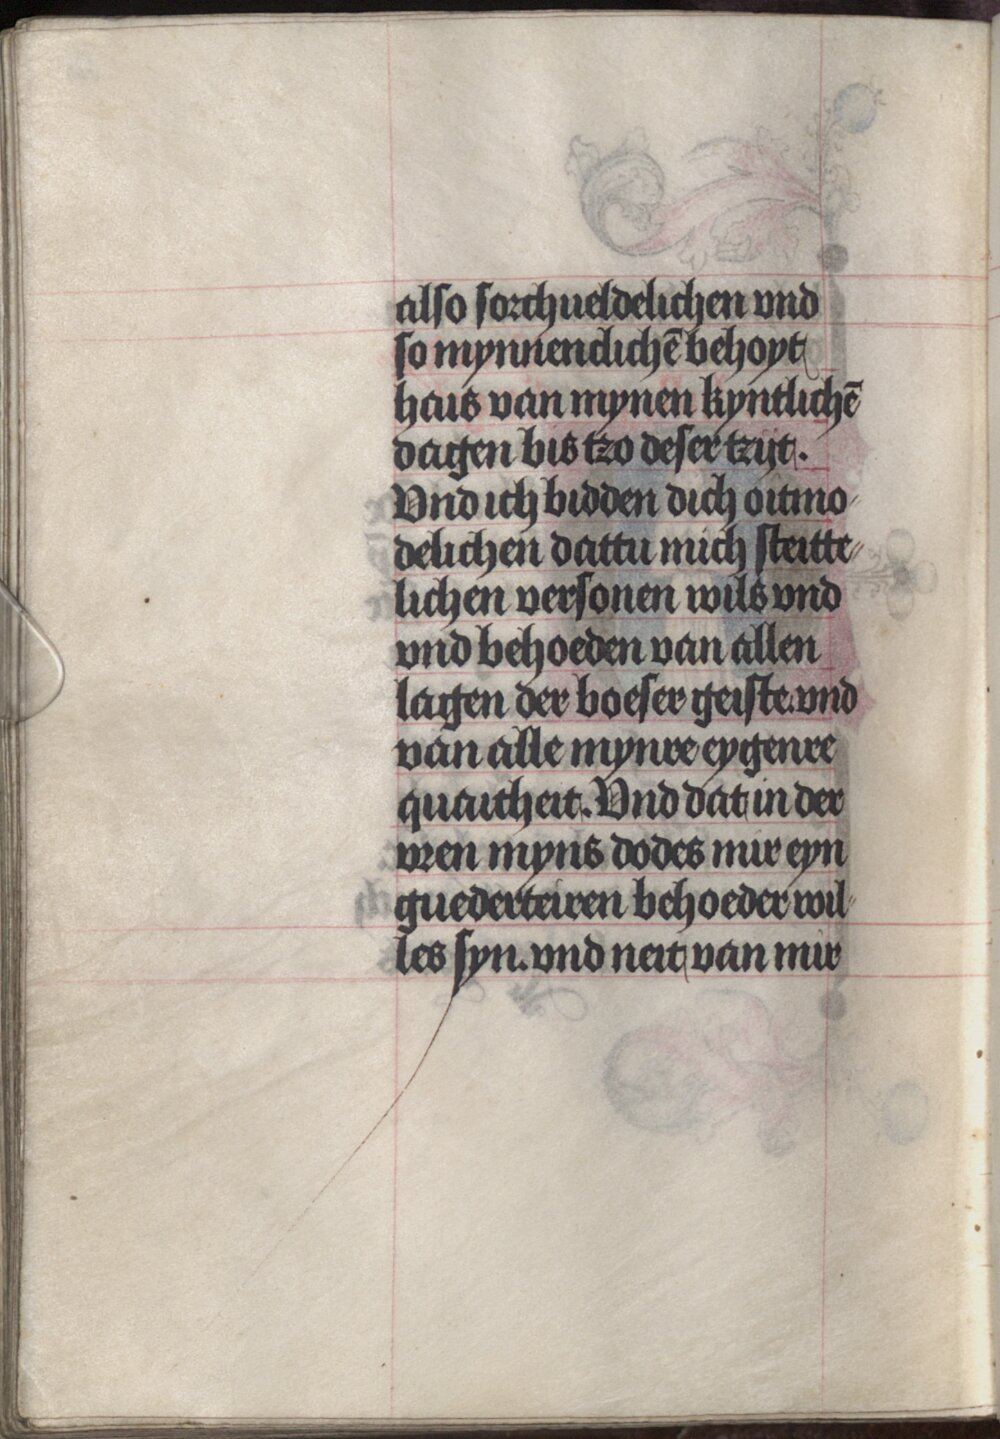 also sorchueldelichen vnd
so mynnenclichē behoyt
hais van mynen kyntlichē
dagen bis tzo deser tzijt.
Vnd ich bidden dich oitmo-
delichen dattu mich steitte-
lichen versonen wils vnd
vnd behoeden van allen
lagen der boeser geiste. vnd
van alle mynre eygenre
quaitheit. Vnd dat in der
vren myns dodes mir eyn
guederteiren behoeder wil-
les syn. vnd neit van mir